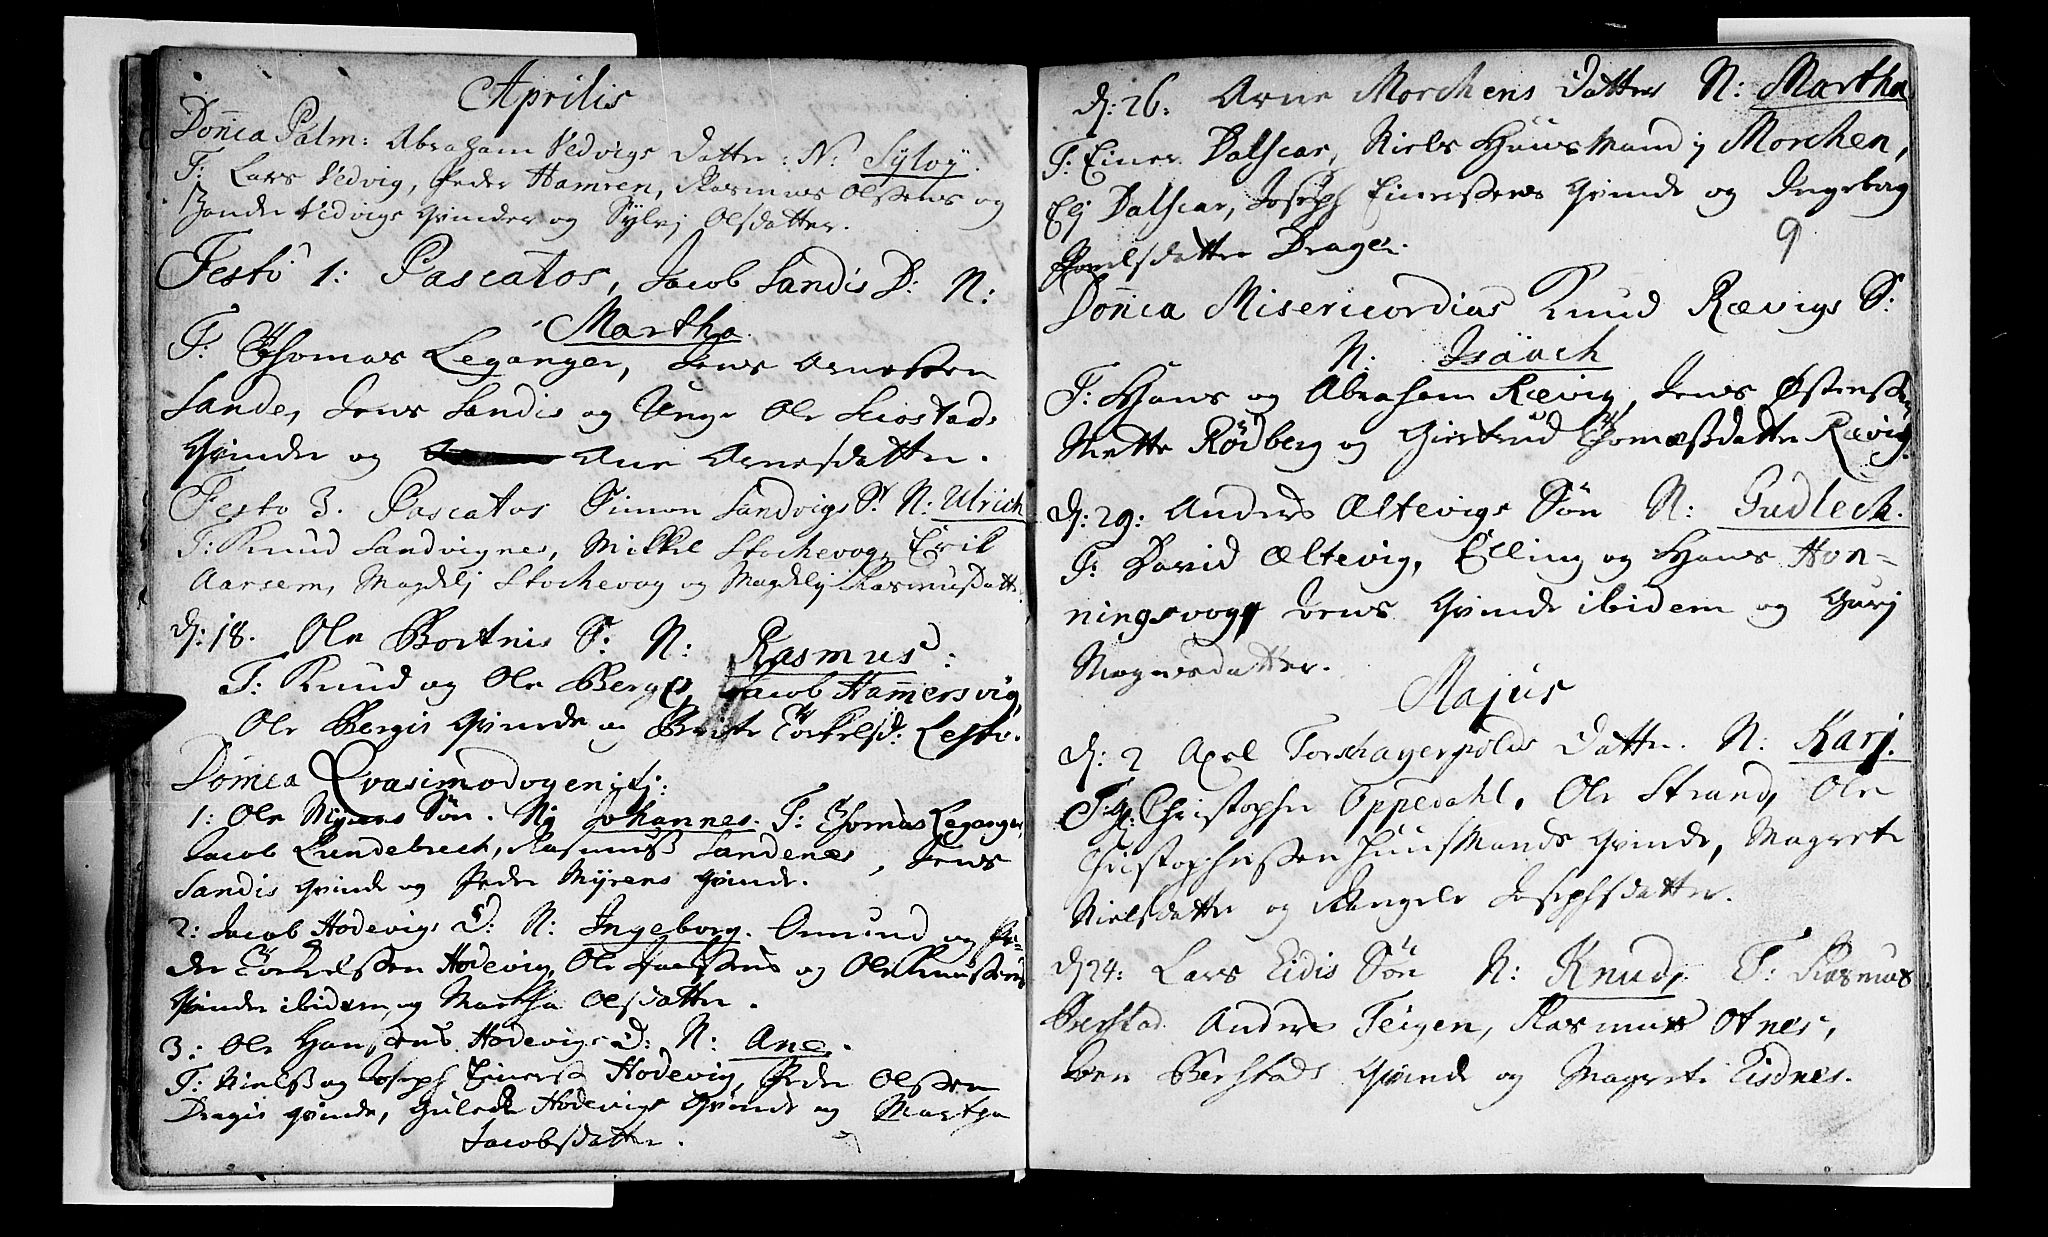 Aprilis
Dom̄ca Palm: Abraham Vedvigs Datter: N: Sylvÿ.
F: Lars Vedvig, Peder Hamren, Rasmus Olssens og
Vedvigs Qvinder og Sylvj Olsdatter.
Festo 1: Pascatos, Jacob Sandis D: N:
Martha.
F: Thomas Leganger, Jens Arnessen
Sande, Jens Sandis og Unge Ole Seiostads
Qvinder og Ane Arnesdatter.
Festo 3. Pascatos Simon Sandvigs S: N: Ulrich
F: Knud Sandvignes, Mikkel Stochevog, Erik
Aarsem, Magdelj Stochevog og Magdelj Rasmusdatt:
d: 18. Ole Bortnis S: N: Rasmus:
F: Knud og Ole Berge, Jacob Hammersvig,
Ole Bergis Qvinde og Torkelsd: Lesto.
Dom̄ca Qvasimodogenitj:
1: Ole Myrens Søn. N: Johannes. F: Thomas Leganger,
Jacob Lundebrech, Rasmus Sandenes, Jens
Sandis Qvinde og Peder Myrens Qvinde.
2: Jacob Hodevigs D: N: Ingeborg. Omund og Pe-
der Torkelssen Hodevig, Ole og Ole Knussens
Qvinder ibidem, og Martha Olsdatter.
3: Ole Hansens Hodevigs D: N: Ane.
F: Niels og Joseph Einerss Hodevig, Peder Olssen
Dragis Qvinde, Hodevigs Qvinde og Martha
Jacobsdatter.
d: 26: Arne Morchens Datter N: Martha
F: Einer Dalscar, Niels Huusmand j Morchen,
Elj Dalscar, Joseph Einerssens Qvinde og Ingeborg
Povelsdatter Drage.
9
Dom̄ca Misericordias Knud Rævigs S:
N: Isaach
F: Hans og Abraham Rævig, Jens Østenss:
Mette Rødberg og Giertrud Thomæsdatter Rævig.
d: 29: Anders Æltevigs Søn N: Gudlech.
F: David Æltevig, Elling og Hans Hon-
ningsvog, Jens Qvinde ibidem og Gurj
Mognesdatter.
Majus
d: 2 Axel Torschagerpolds Datter. N: Karj.
F: Christopher Oppedahl, Ole Strand, Ole
Christophersen Huusmands Qvinde, Magrete
Nielsdatter og Rangele Josephsdatter.
d 24: Lars Eidis Søn N: Knud. F: Rasmus
Berstad Anders Teigen, Rasmus Otnes,
Berstads Qvinde og Magrete Eisdnes.